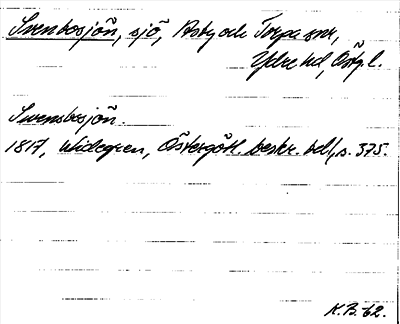 Svenbosjön, sjö, Asby och Torpa snr,
Ydre hd, Östg. l.
Svensbosjön.
1817, Widegren, Östergötl. beskr. bd I, s. 375.
K.B. 62.